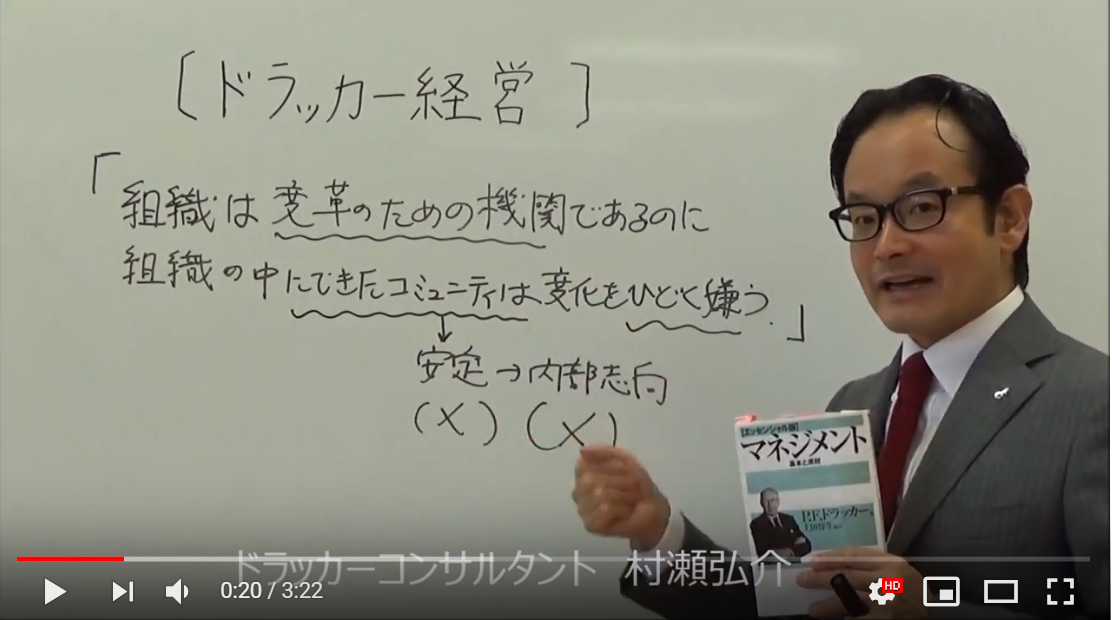 〔ドラッカー経営〕
「組織は変革のための機関であるのに
組織の中にできたコミュニティは変化をひどく嫌う.」
安定→内部志向
(×)(×)
[エッセンシャル版]
マネジメント
基本と原則
P.F.ドラッカー 著
上田惇生
ドラッカーコンサルタント 村瀬弘介
0:20 / 3:22
HD